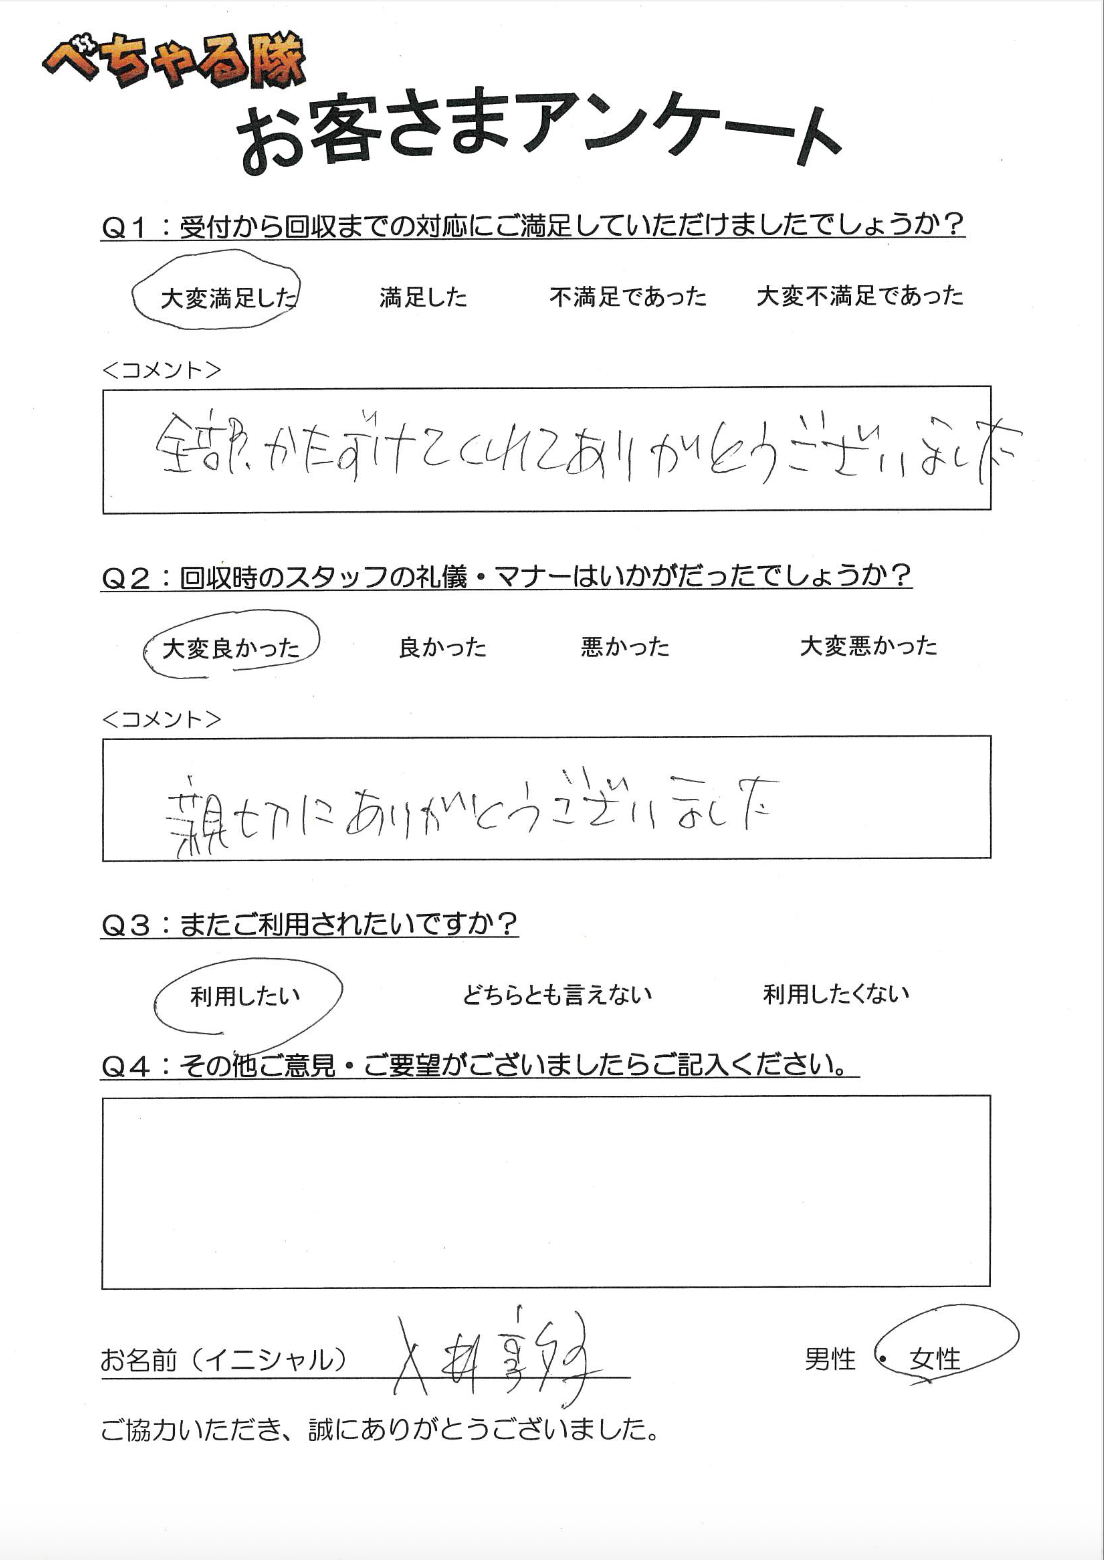 べちゃる隊
お客さまアンケート
Q1：受付から回収までの対応にご満足していただけましたでしょうか？
大変満足した 満足した 不満足であった 大変不満足であった
＜コメント＞
全部かたずけてくれてありがとうございました
Q2：回収時のスタッフの礼儀・マナーはいかがだったでしょうか？
大変良かった 良かった 悪かった 大変悪かった
＜コメント＞
親切にありがとうございました
Q3：またご利用されたいですか？
利用したい どちらとも言えない 利用したくない
Q4：その他ご意見・ご要望がございましたらご記入ください。
お名前（イニシャル） 男性 ・ 女性
ご協力いただき、誠にありがとうございました。